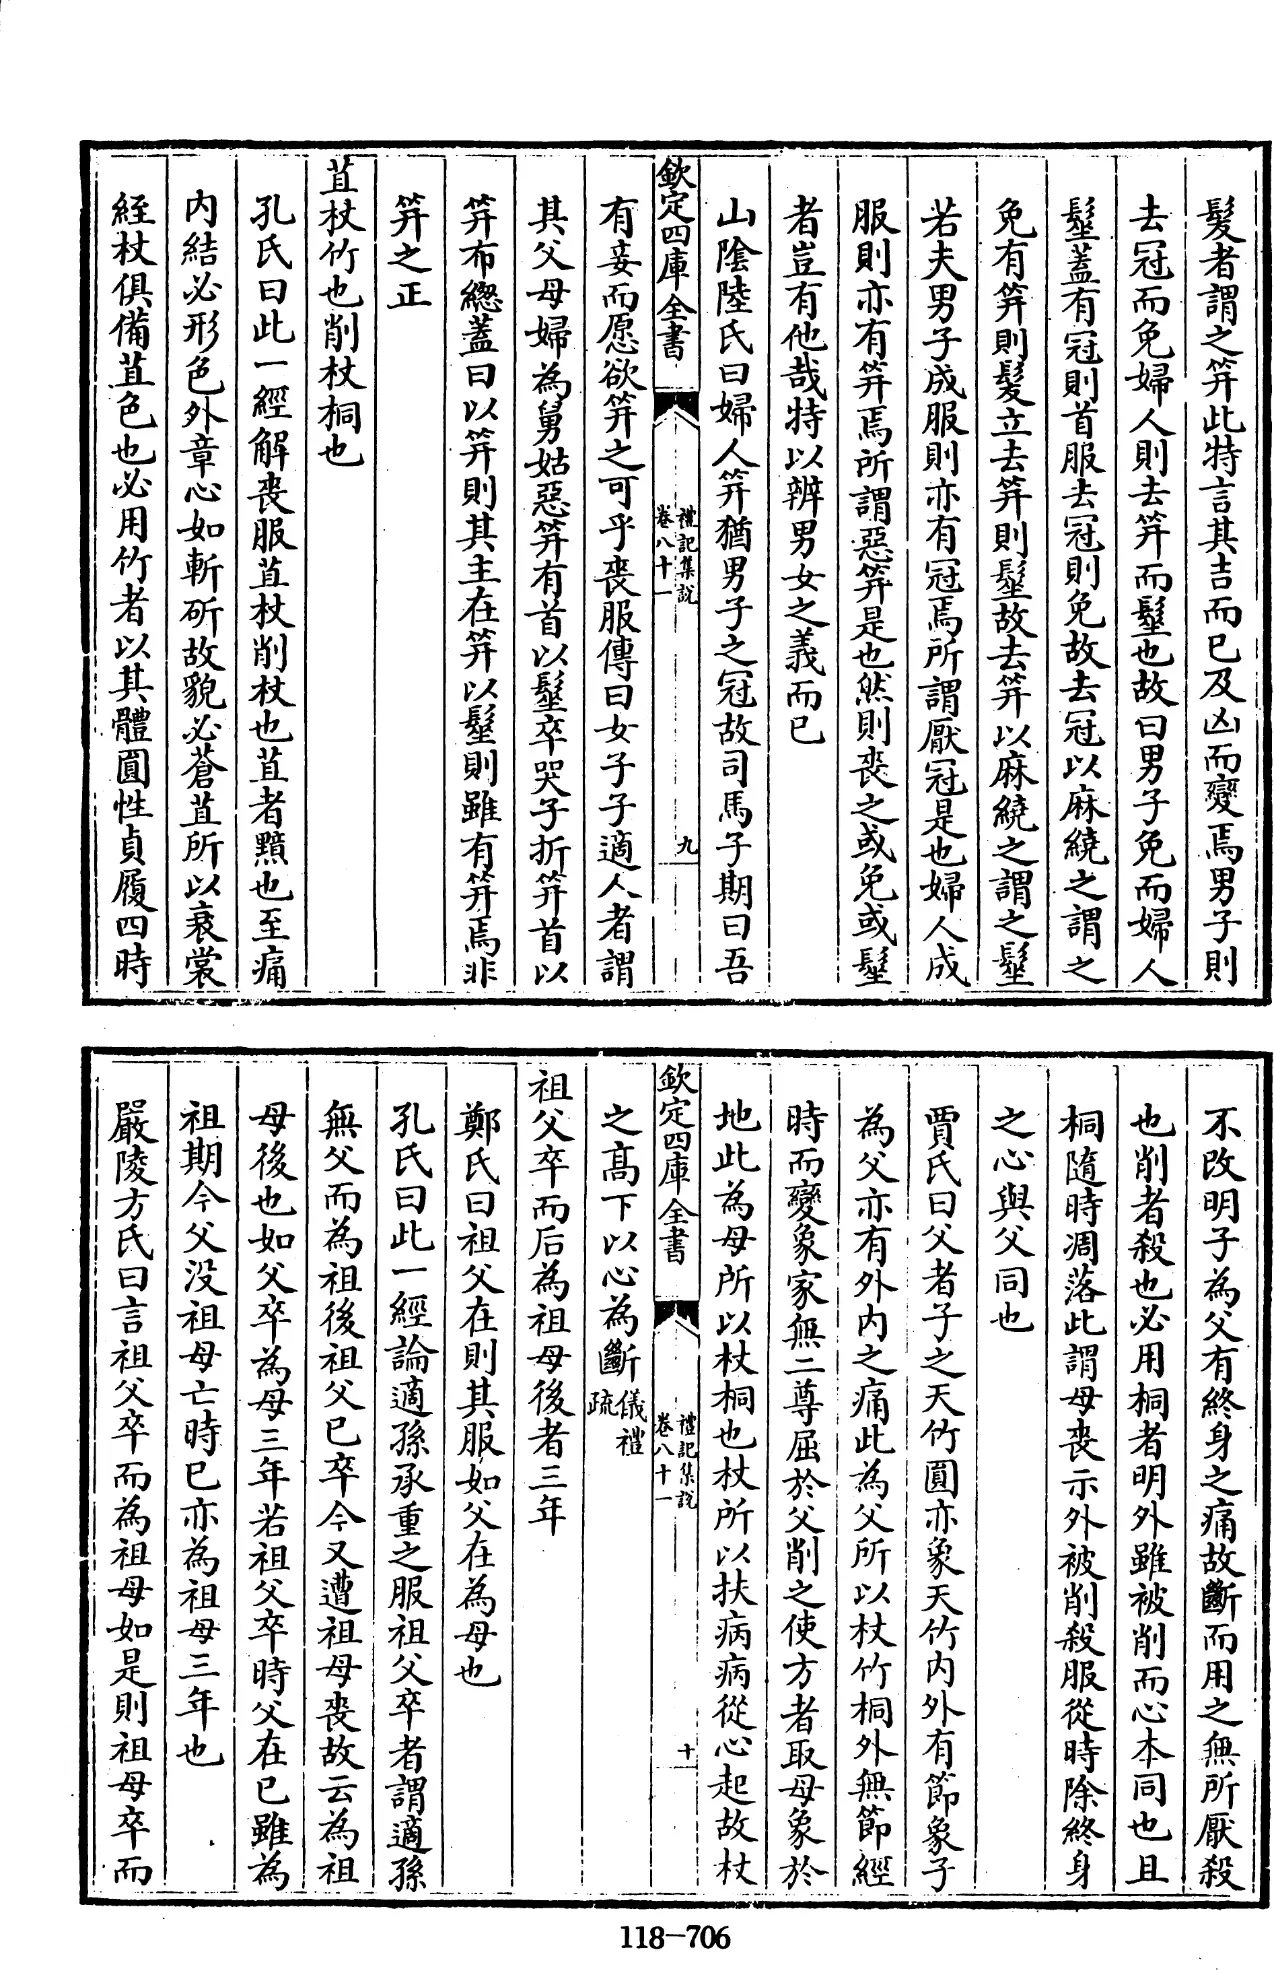 髮者謂之筓此特言其吉而已及凶而變焉男子則
去冠而免婦人則去筓而髽也故曰男子免而婦人
髽蓋有冠則首服去冠則免故去冠以麻繞之謂之
免有筓則髮立去筓則髽故去筓以麻繞之謂之髽
若夫男子成服則亦有冠焉所謂厭冠是也婦人成
服則亦有筓焉所謂惡筓是也然則喪之或免或髽
者豈有他哉特以辨男女之義而已
山陰陸氏曰婦人筓猶男子之冠故司馬子期曰吾
欽定四庫全書
禮記集說
卷八十一
九
有妾而愿欲筓之可乎喪服傳曰女子子適人者謂
其父母婦為舅姑惡筓有首以髽卒哭子折筓首以
筓布緫蓋曰以筓則其主在筓以髽則雖有筓焉非
筓之正
苴杖竹也削杖桐也
孔氏曰此一經解喪服苴杖削杖也苴者黯也至痛
内結必形色外章心如斬斫故貌必蒼苴所以衰裳
絰杖俱備苴色也必用竹者以其體圓性貞履四時
不改明子為父有終身之痛故斷而用之無所厭殺
也削者殺也必用桐者明外雖被削而心本同也且
桐隨時凋落此謂母喪示外被削殺服從時除終身
之心與父同也
賈氏曰父者子之天竹圓亦象天竹内外有節象子
為父亦有外内之痛此為父所以杖竹桐外無節經
時而變象家無二尊屈於父削之使方者取母象於
地此為母所以杖桐也杖所以扶病病從心起故杖
欽定四庫全書
禮記集說
卷八十一
十
之高下以心為斷儀禮疏
祖父卒而后為祖母後者三年
鄭氏曰祖父在則其服如父在為母也
孔氏曰此一經論適孫承重之服祖父卒者謂適孫
無父而為祖後祖父已卒今又遭祖母喪故云為祖
母後也如父卒為母三年若祖父卒時父在已雖為
祖期今父没祖母亡時已亦為祖母三年也
嚴陵方氏曰言祖父卒而為祖母如是則祖母卒而
118-706